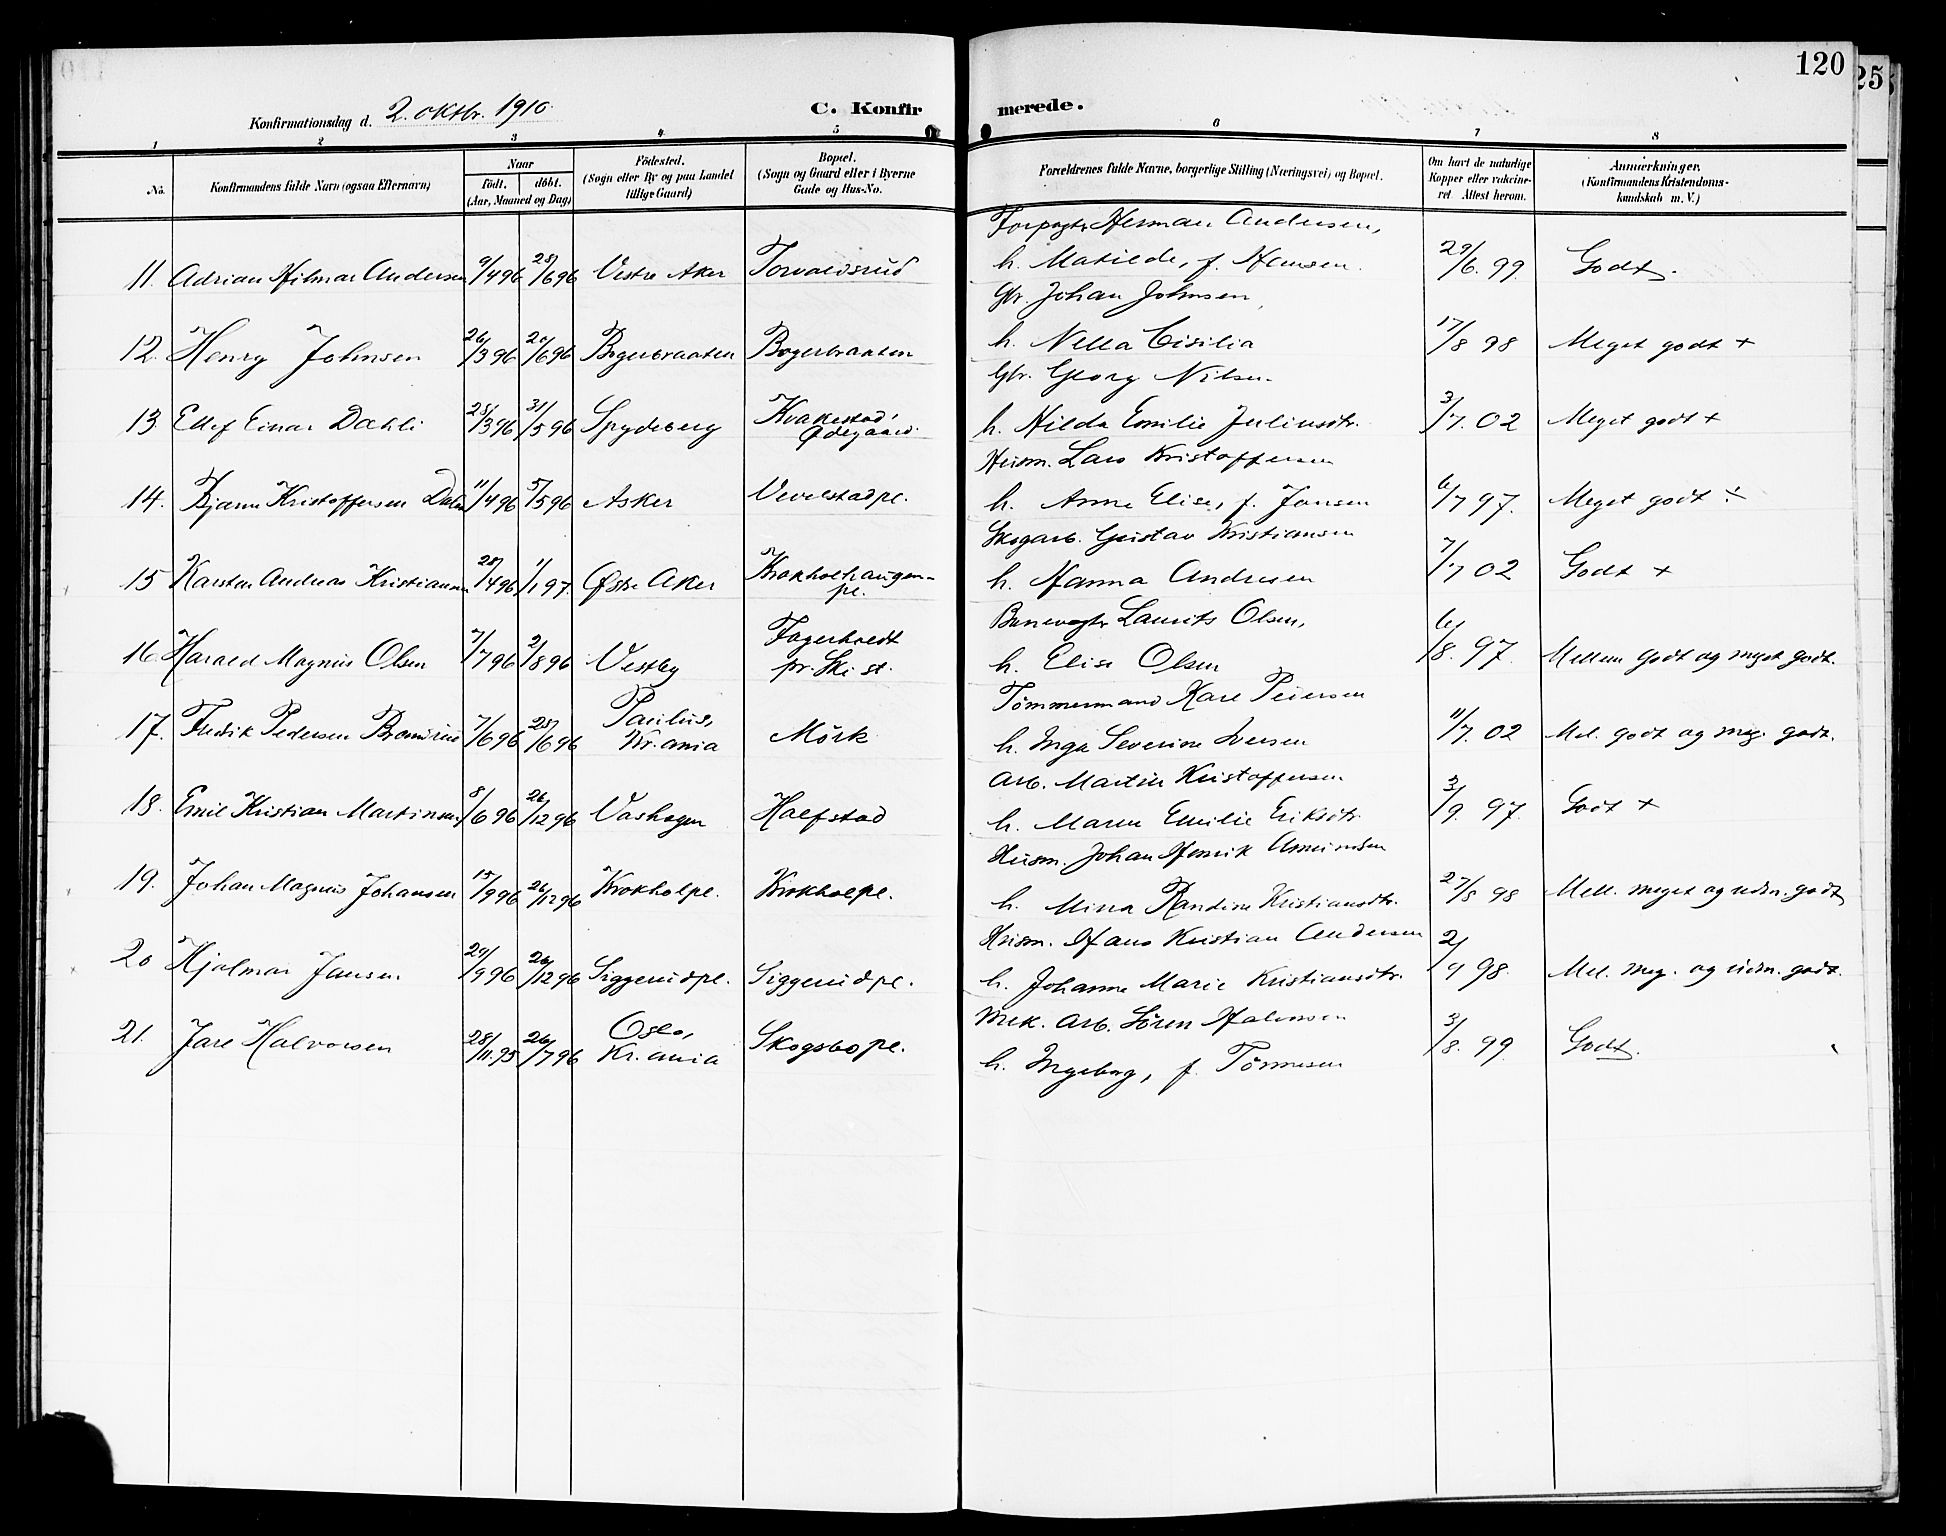 120
25
Konfirmationsdag d. 2. oktbr. 1910.
C. Konfirmerede.
1 2 3 4 5 6 7 8
No.
Konfirmandens fulde Navn (ogsaa Efternavn)
Naar
födt. döbt.
(Aar, Maaned og Dag)
Födested.
(Sogn eller By og paa Landet tillige Gaard)
Bopæl.
(Sogn og Gaard eller i Byerne Gade og Hus-No.
Forældrenes fulde Navne, borgerlige Stilling (Næringsvei) og Bopæl.
Om havt de naturlige Kopper eller vakcineret. Attest herom.
Anmærkninger.
(Konfirmandens Kristendomskundskab m. V.)
Forpagter Herman Andersen,
11. Adrian Hilmar Andersen 9/4 96 28/6 96 Vestre Aker Torvaldsrud h. Matilde, f. Hansen. 29/6. 99. Godt.
Gbr. Johan Johnsen,
12. Henry Johnsen 26/3 96 20/6 96 Bogerbraaten Bogerbraaten h. Nella Cisilia 17/8 98 Meget godt +
Gbr. Georg Nilsen
13 Ellef Einar Dahli 25/3 96 31/5 96 Spydeberg Kvakestad Ødegaard. h. Hilda Emilie Juliusdtr. 3/7. 02 Meget godt +
Husm. Lars Kristoffersen
14. Bjarne Kristoffersen 11/4 96 5/5 96 Asker Vevelstadpl. h. Anne Elise, f. Jansen 6/7 97. Meget godt +
Skogarb. Gustav Kristiansen
15 Karsten Andreas Kristiansen 28/4 96 1/1 97. Østre Aker Krokholhaugen-pl. h. Hanna Andresen 7/7 02 Godt +
Banevogter Laurits Olsen,
16. Harald Magnus Olsen 7/7 96 2/8 96 Vestby Fagerholdt pr. Ski st. h. Elise Olsen 6/8. 97. Mellem godt og meget godt.
Tömmermand Karl Petersen
17. Fredrik Pedersen 7/6 96 28/6 96 Paulus, Kr.ania Mörk h. Inga Severine Iversen 11/7. 02 Mel. godt og meg. godt.
Arb. Martin Kristoffersen
18. Emil Kristian Martinsen 8/6 96 26/12 96 Vashagen Halfstad h. Maren Emilie Eriksdtr. 3/9. 97. Godt +
Husm. Johan Henrik
19. Johan Magnus Johansen 15/9 96 26/12 96 Krokholpl. Krokholpl. h. Mina Randine Kristiansdtr. 27/8 98 Mell. meget og udm. godt
Husm. Hans Kristian Andersen
20 Hjalmar Jansen 29/9 96 26/12 96 Siggerudpl. Siggerudpl. h. Johanne Marie Kristiansdtr. 2/9 98. Mel. meg. og udm. godt.
Mek. arb. Sören Halvorsen
21. Jarl Halvorsen 28/11. 95 26/7 96 Oslo, Kr.ania Skogsbopl. h. Ingeborg, f. Tönnesen 3/8. 99. Godt.